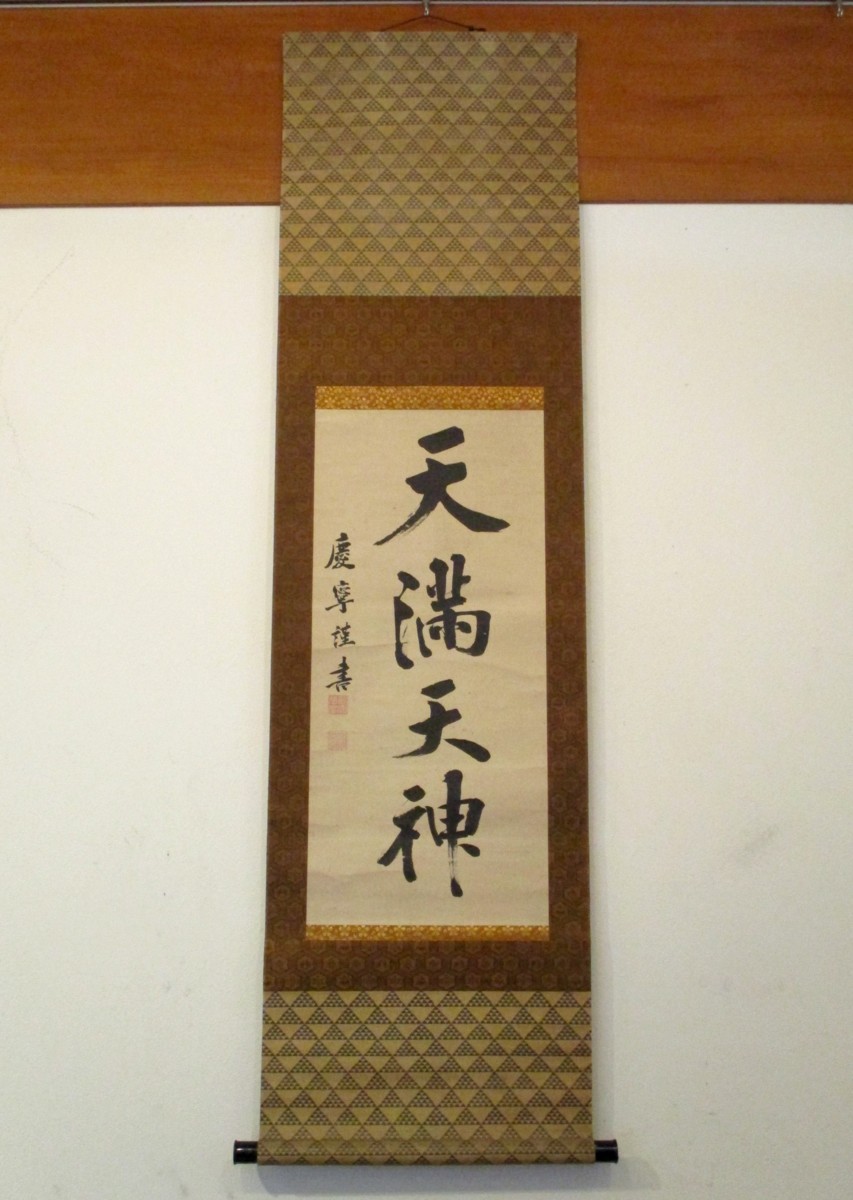 天満天神
慶寧謹書